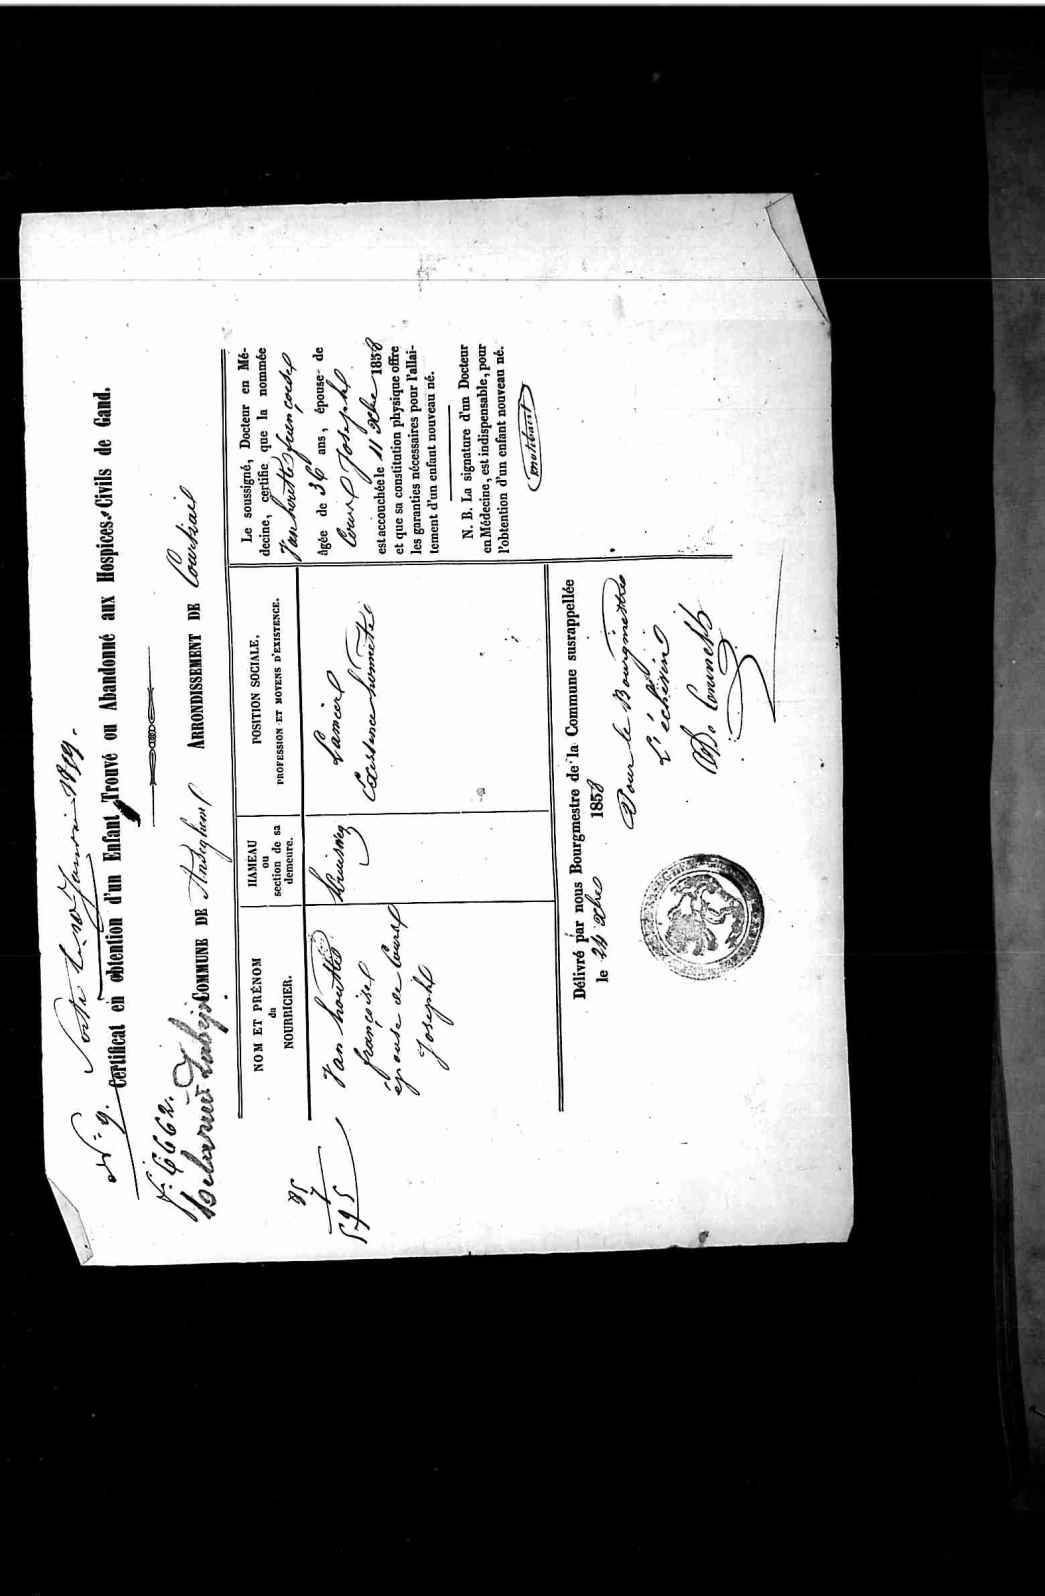 N: 9. Sorti le 10 Janvier 1859.
Certificat en obtention d'un Enfant Trouvé ou Abandonné aux Hospices Civils de Gand.
f: 6662.
COMMUNE DE Anseghem ARRONDISSEMENT DE Courtrai
NOM ET PRÉNOM
du
NOURRICIER.
HAMEAU
ou
section de sa
demeure.
POSITION SOCIALE,
PROFESSION ET MOYENS D'EXISTENCE.
85
7
595
Van houtte
françoise
épouse de
Joseph
Kruisweg
Existence honnête
Le soussigné, Docteur en Mé-
decine, certifie que la nommée
Van houtte françoise
âgée de 36 ans, épouse de
Joseph
est accouchée le 11 Xbre 1858
et que sa constitution physique offre
les garanties nécessaires pour l'allai-
tement d'un enfant nouveau né.
N. B. La signature d'un Docteur
en Médecine, est indispensable, pour
l'obtention d'un enfant nouveau né.
Délivré par nous Bourgmestre de la Commune susrappellée
le 24 Xbre 1858
Pour le Bourgmestre
L'échevin